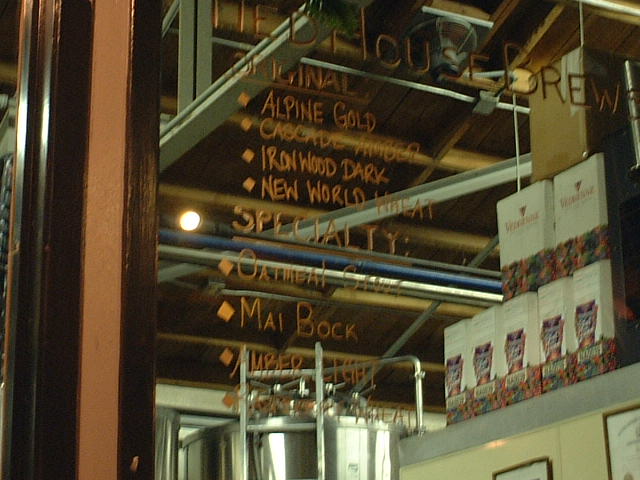 HOUSE BREW
ORIGINAL
ALPINE GOLD
CASCADE AMBER
IRONWOOD DARK
NEW WORLD WHEAT
SPECIALTY:
OATMEAL STOUT
MAI BOCK
AMBER LIGHT
WHEAT